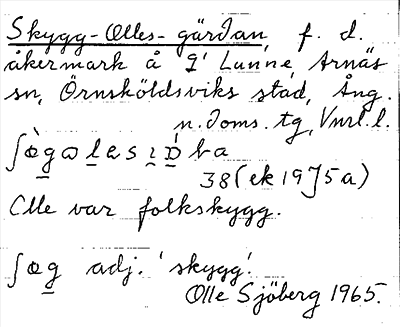 Skygg-Olles-gärdan, f. d.
åkermark å 9' Lunne, Arnäs
sn, Örnsköldsviks stad, Ång.
n. doms. tg, Vnrl. l.
38 (ek 19 J5a)
Olle var folkskygg.
adj. 'skygg'.
Olle Sjöberg 1965.